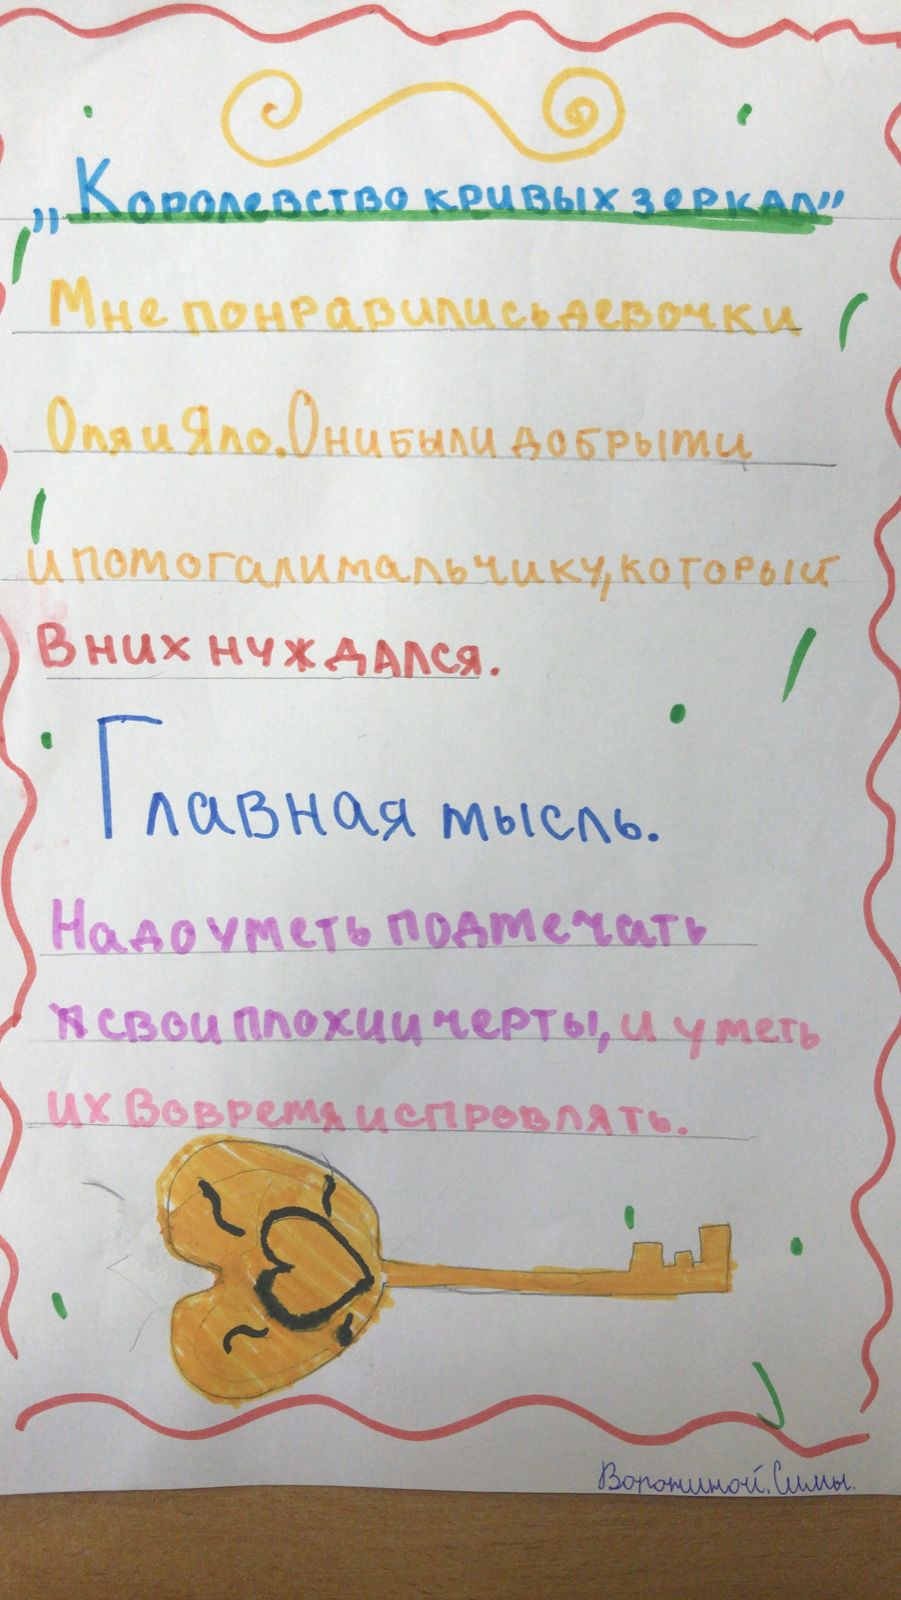 „Королевство кривых зеркал”
Мне понравились девочки
Оля и Яло. Они были добрыми
и помогали мальчику, который
в них нуждался.
Главная мысль.
Надо уметь подмечать
свои плохии черты, и уметь
их вовремя испровлять.
Ворониной. Симы.